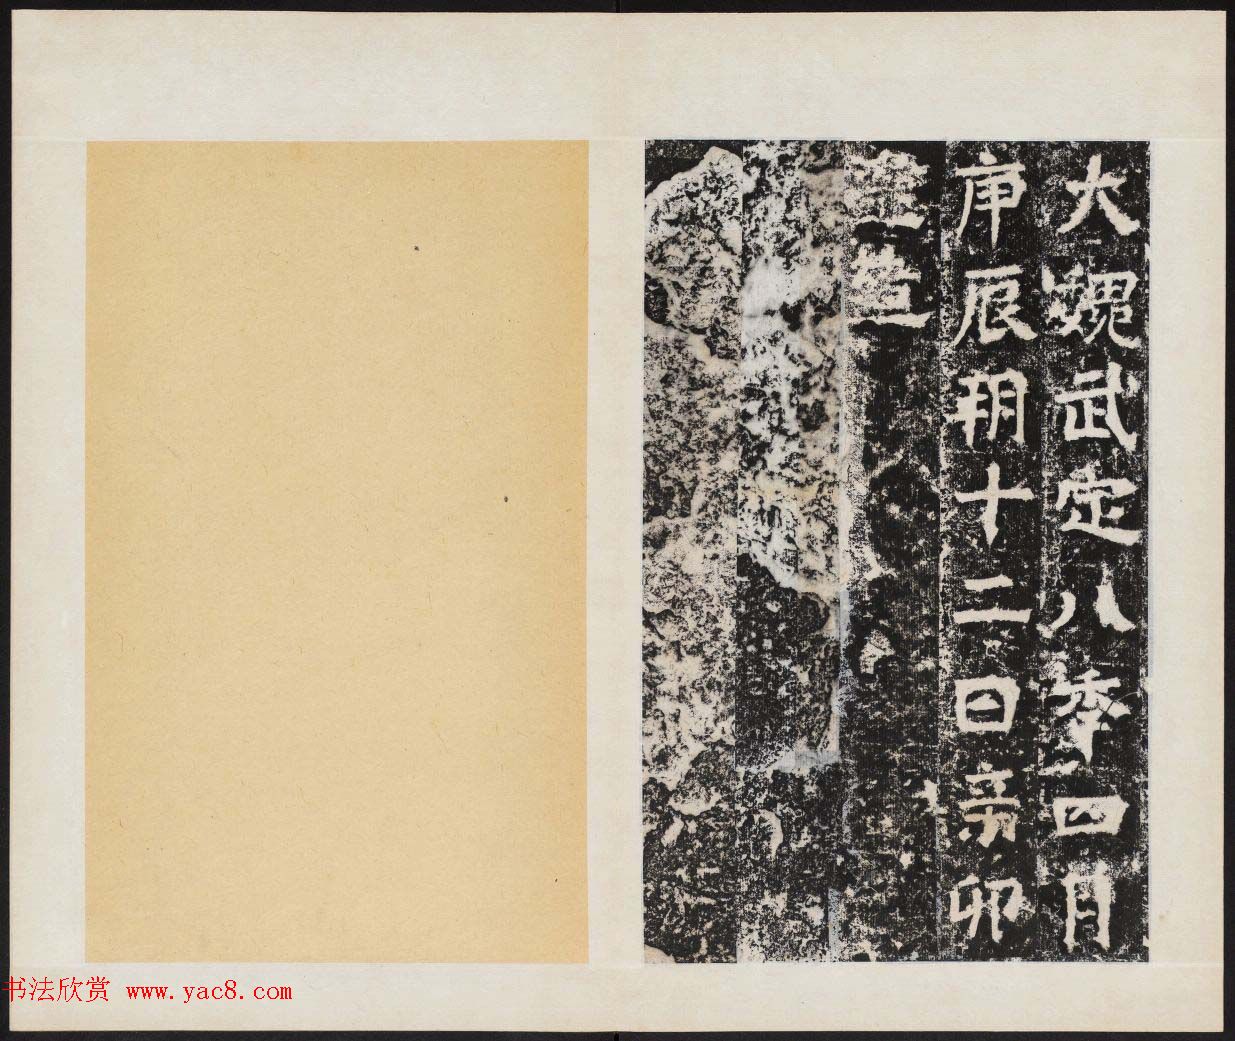 大魏武定八年四月
庚辰朔十二日辛卯
建造
书法欣赏 www.yac8.com